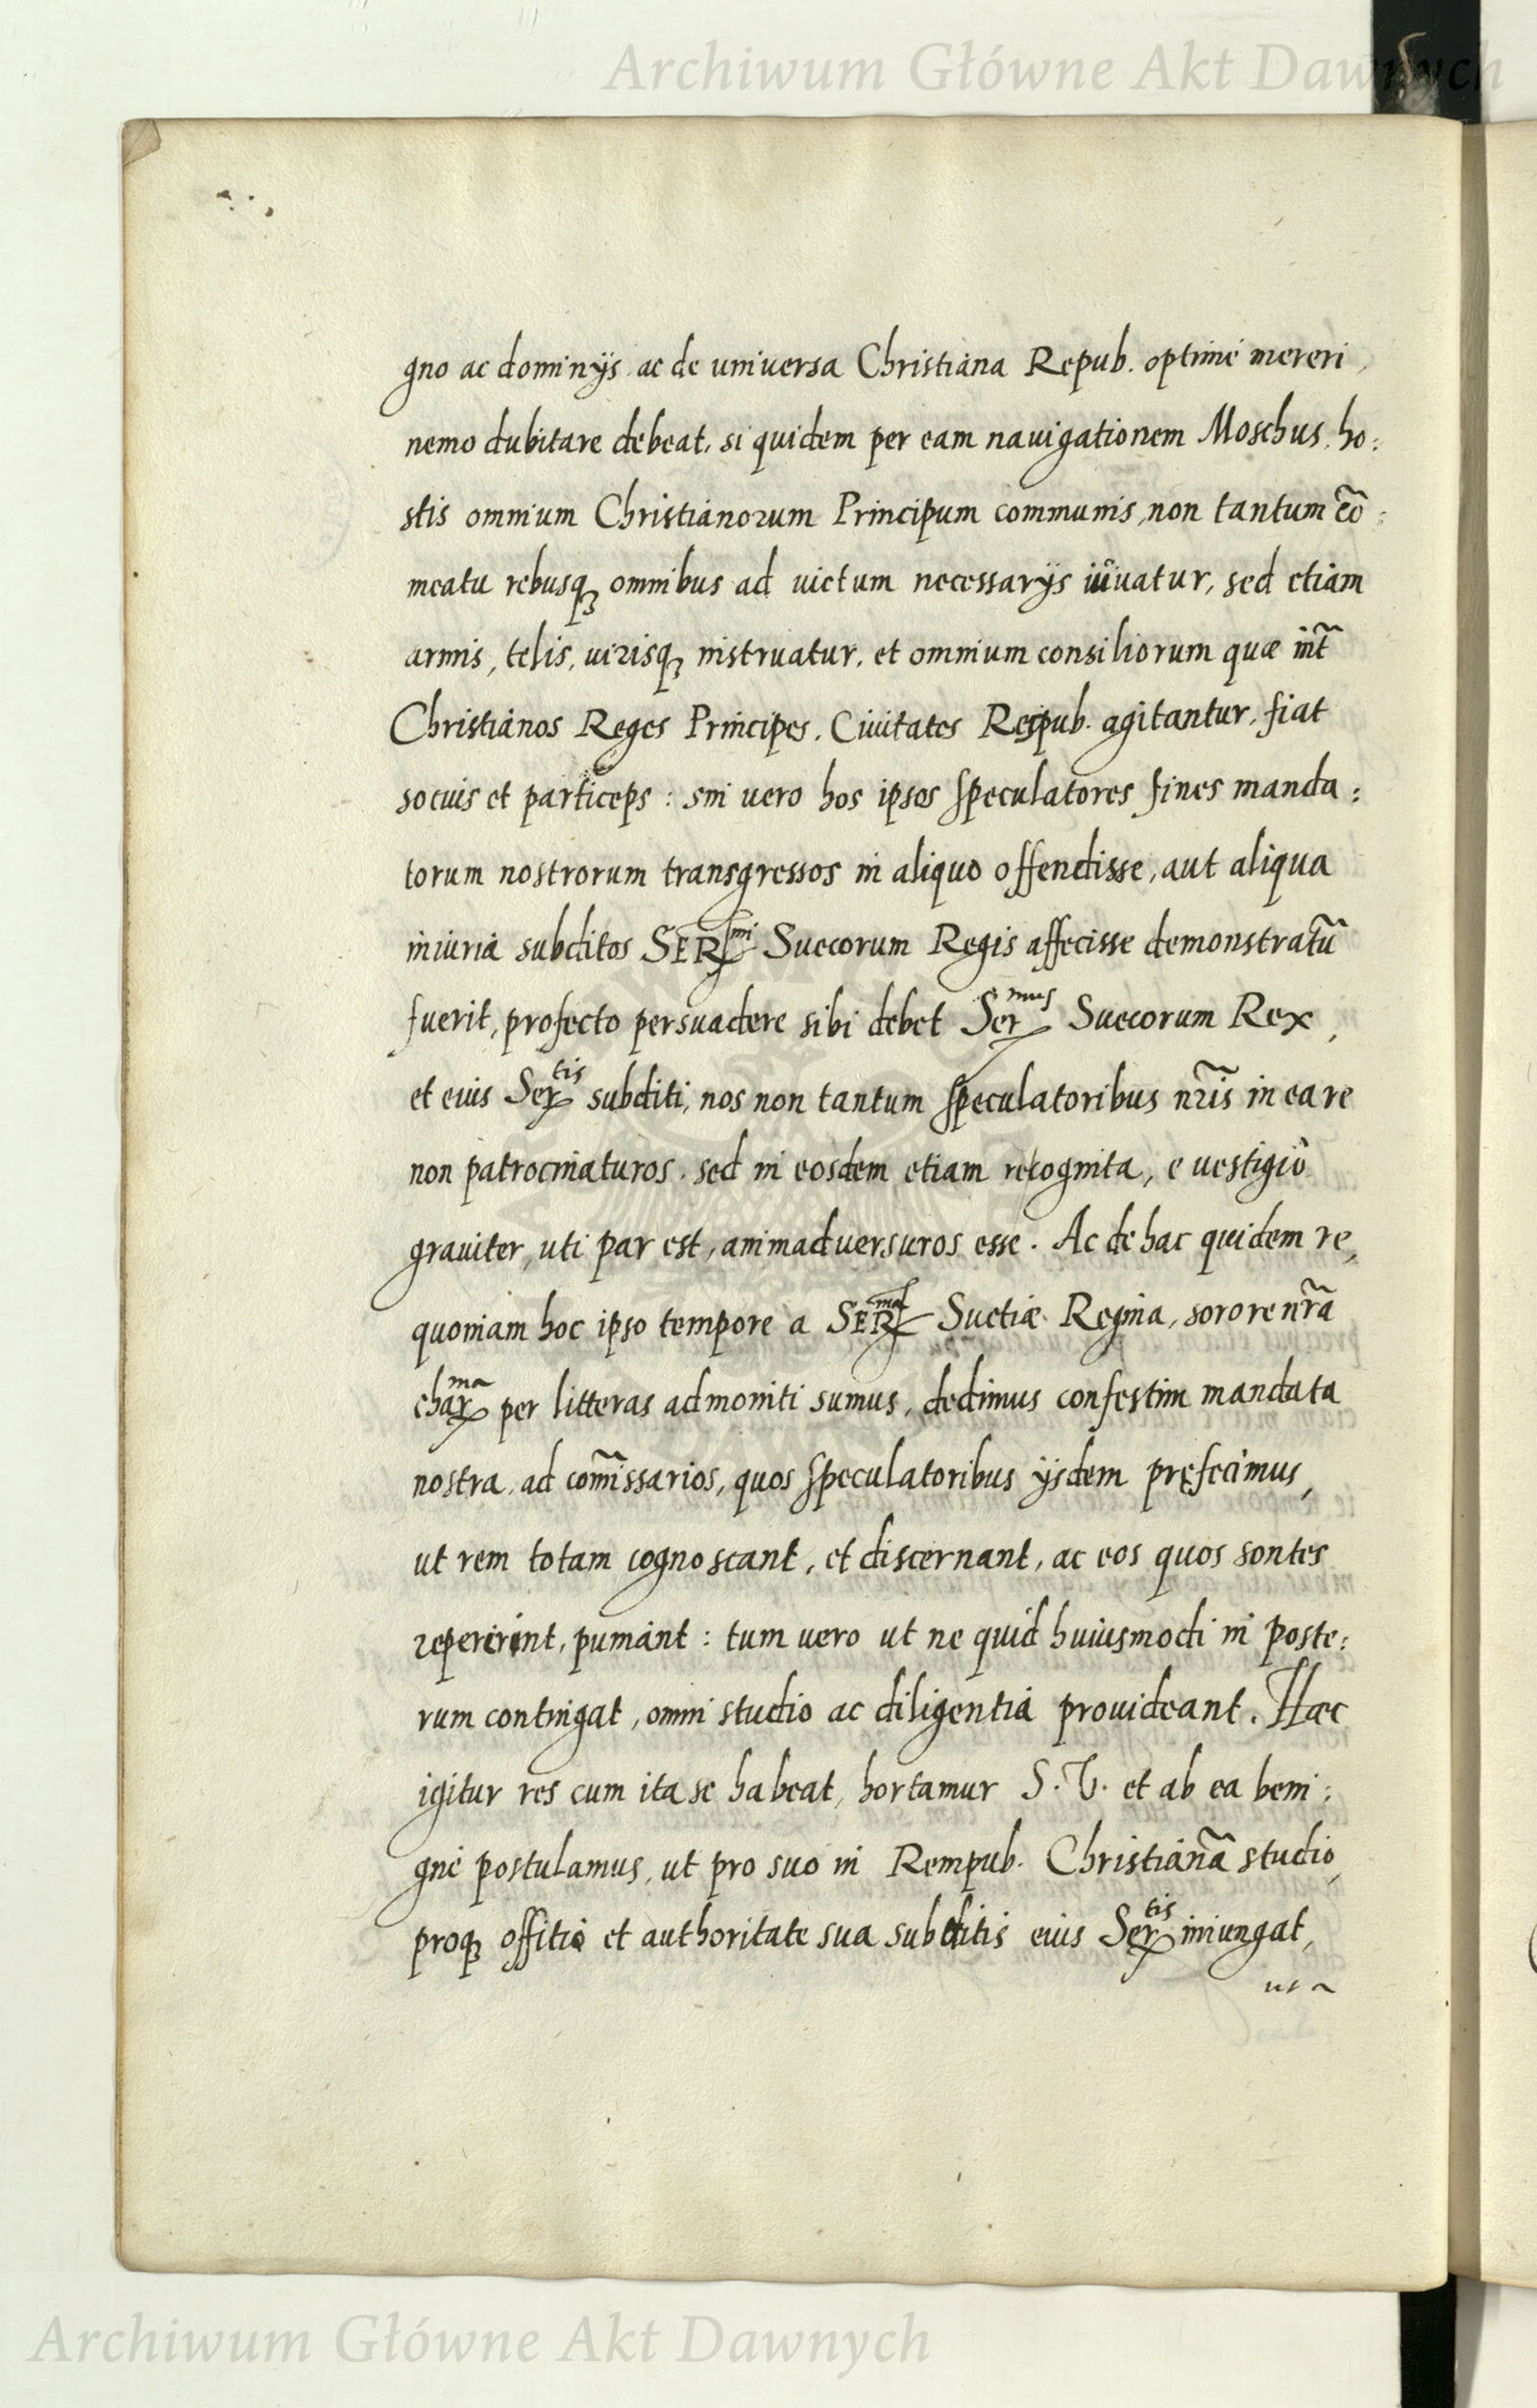 Archiwum Główne Akt Dawnych
gno ac dominijs ac de universa Christiana Repub. optimè mereri,
nemo dubitare debeat, si quidem per eam nauigationem Moschus, ho:
stis omnium Christianorum Principum communis, non tantum cō:
meatu rebusq; omnibus ad victum necessarijs iuvatur, sed etiam
armis, telis, virisq; instruatur, et omnium consiliorum quæ int̃
Christianos Reges Principes, Civitates Respub. agitantur, fiat
socius et particeps: sin vero hos ipsos speculatores fines manda:
torum nostrorum transgressos in aliquo offendisse, aut aliqua
iniuria subditos SERmi Suecorum Regis affecisse demonstratũ
fuerit, profecto persuadere sibi debet Sermus Suecorum Rex,
et eius Sertis subditi, nos non tantum speculatoribus nr̃is in ea re
non patrocinaturos, sed in eosdem etiam re cognita, e vestigio
grauiter, uti par est, animaduersuros esse. Ac de hac quidem re,
quoniam hoc ipso tempore a SERma Suetiæ Regina, sorore nr̃a
charma per litteras admoniti sumus, dedimus confestim mandata
nostra ad com̃issarios, quos speculatoribus ijsdem pręfecimus,
ut rem totam cognoscant, et discernant, ac eos quos sontes
repererint, puniant: tum vero ut ne quid huiusmodi in poste:
rum contingat, omni studio ac diligentia prouideant. Hæc
igitur res cum ita se habeat, hortamur S. V. et ab ea beni:
gnè postulamus, ut pro suo in Rempub. Christianã studio,
proq; offitio et authoritate sua subditis eius Sertis iniungat,
ut a
Archiwum Główne Akt Dawnych